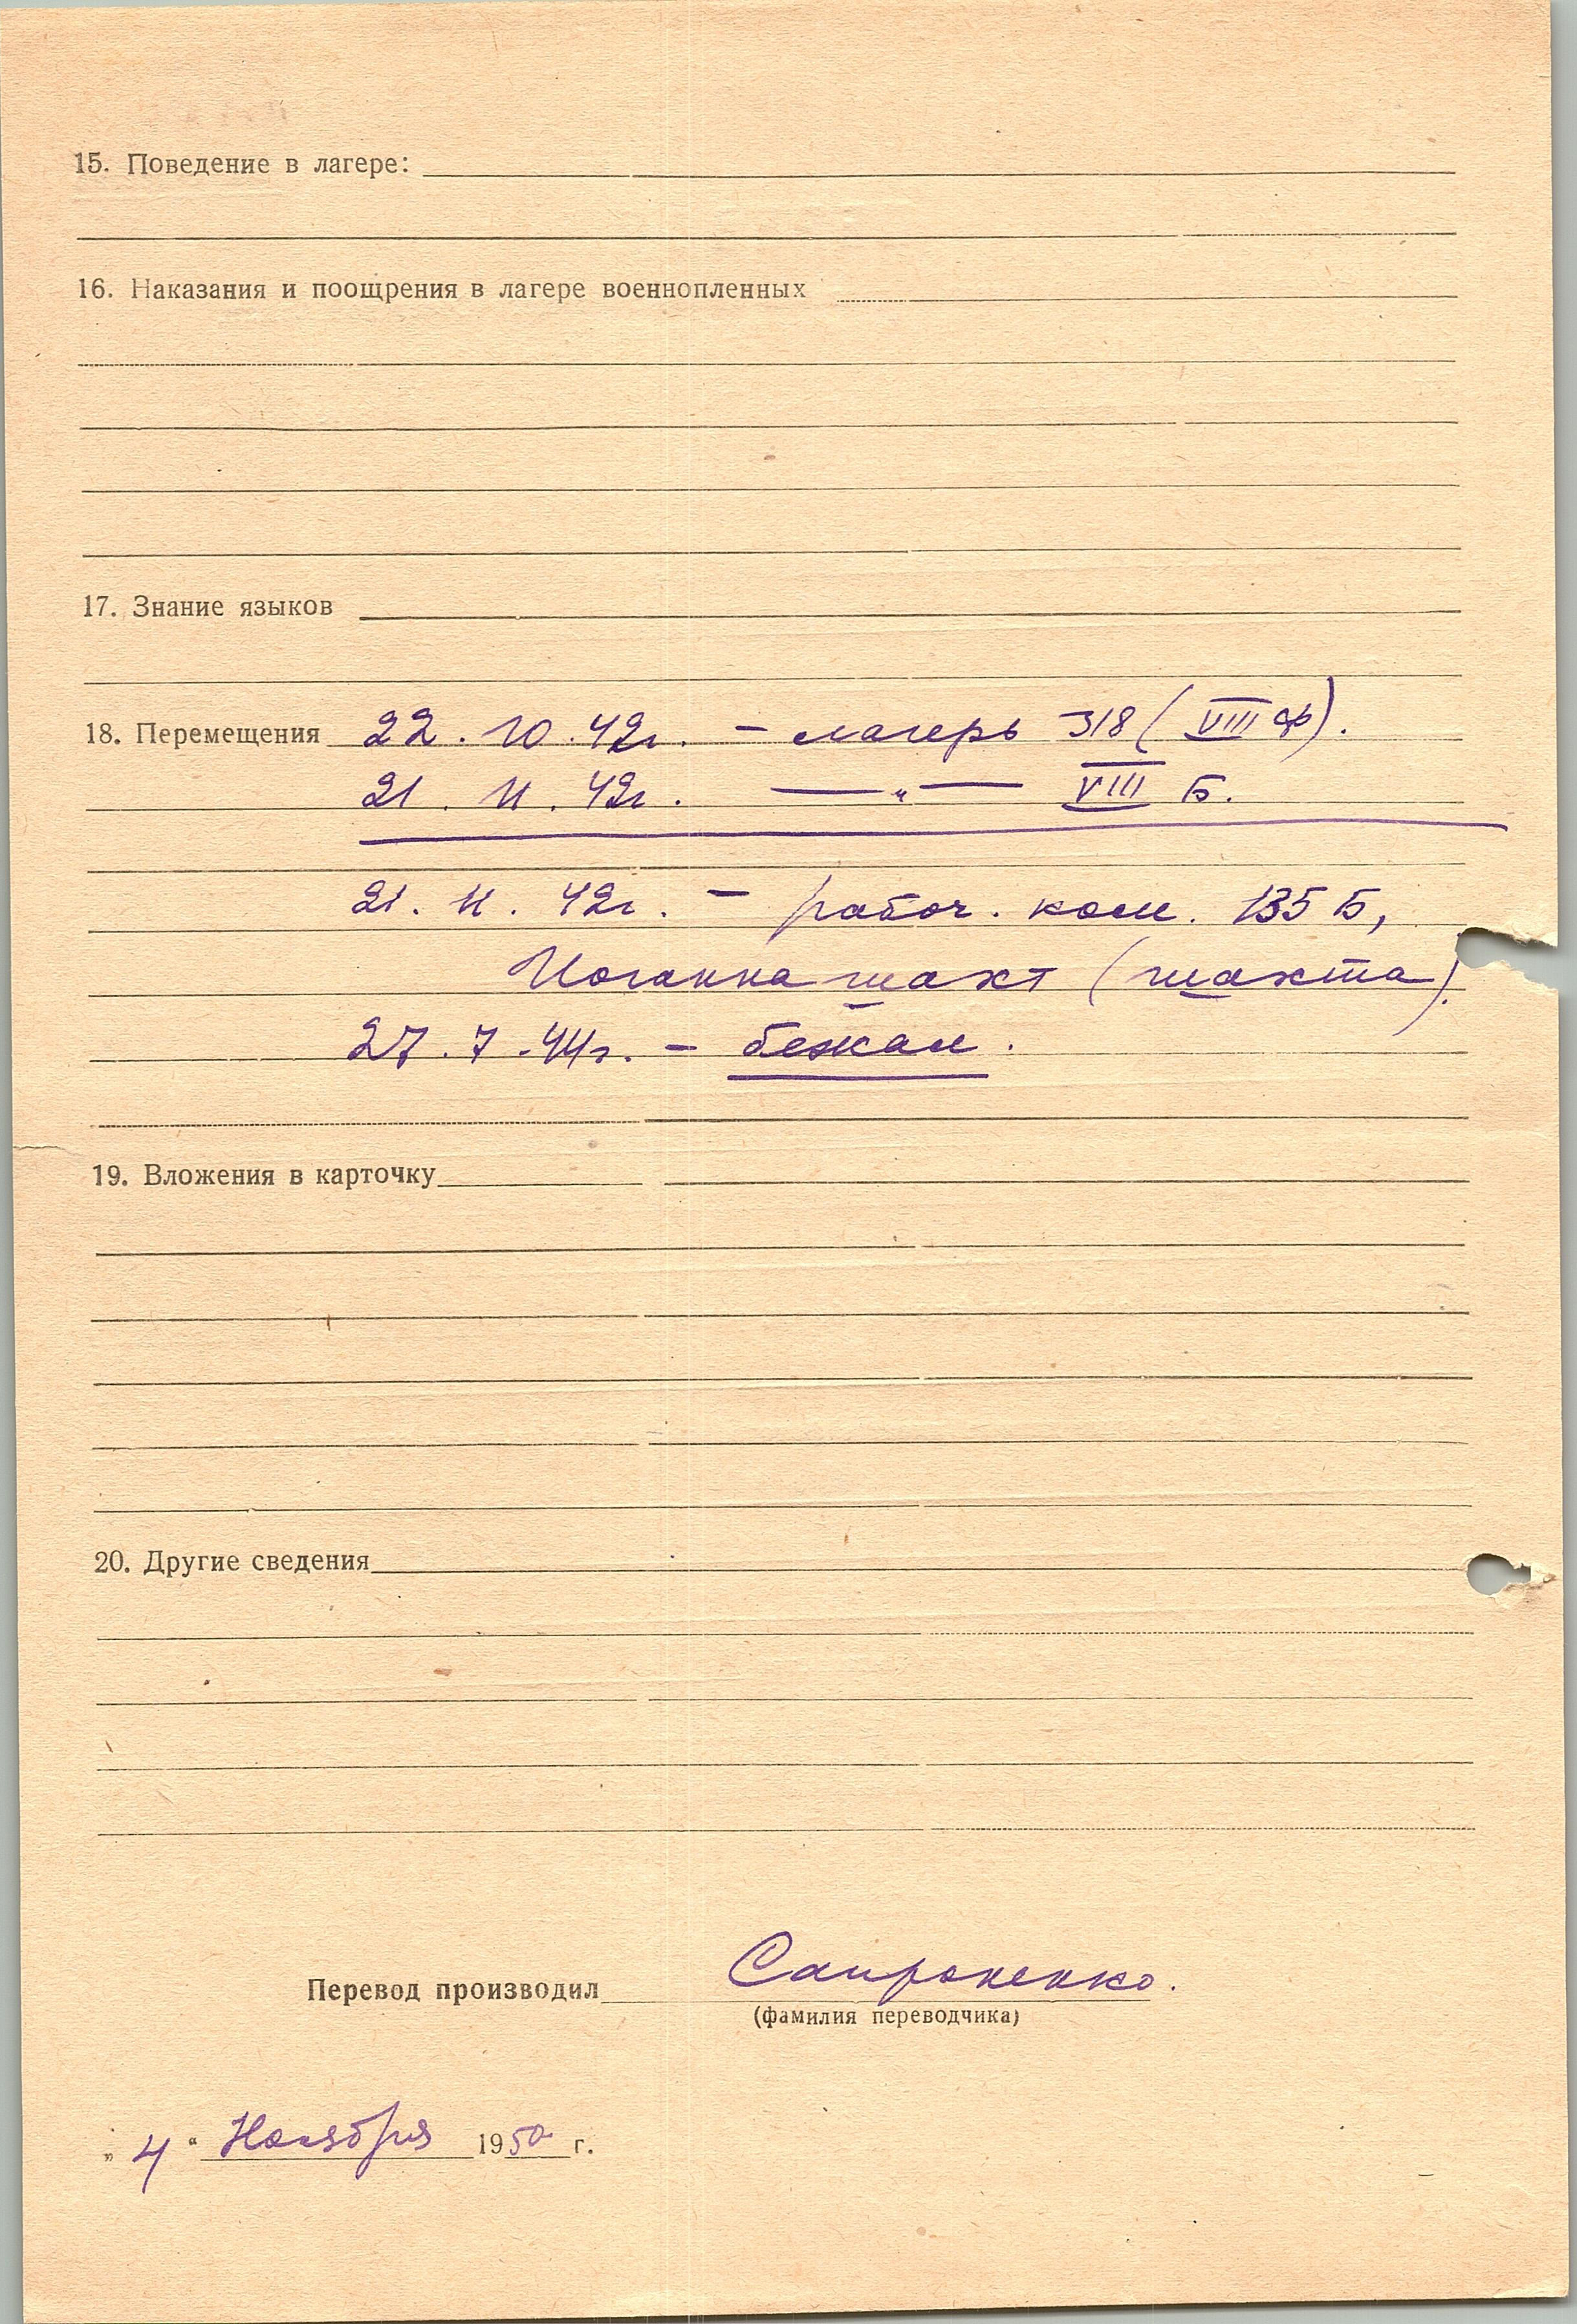 15. Поведение в лагере:
16. Наказания и поощрения в лагере военнопленных
17. Знание языков
18. Перемещения 22.10.42г. – лагерь 318 (VIII ф).
21.11.42г. —"— VIII Б.
21.11.42г. – рабоч. ком. 135 Б,
Иоганна шахт (шахта).
27.7.44г. – бежал.
19. Вложения в карточку
20. Другие сведения
Перевод производил Сапроненко.
(фамилия переводчика)
„4“ Ноября 1950 г.